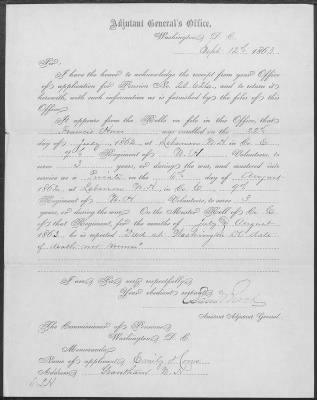 Adjutant General's Office,
Washington, D. C.
Sept. 12th, 1863.
Sir:
I have the honor to acknowledge the receipt from your Office
of application for Pension No. and to return it
herewith, with such information as is furnished by the files of this
Office.
It appears from the Rolls on file in this Office, that
Francis was enrolled on the 22d
day of July, 1862, at Lebanon N.H. in Co. E
9th Regiment of N.H. Volunteers, to
serve 3 years, or during the war, and mustered into
service as a Private on the 6th day of August
1862, at Lebanon N.H. in Co. E 9th
Regiment of N.H. Volunteers, to serve 3
years, or during the war. On the Muster Roll of Co. E
of that Regiment, for the months of July & August
1863, he is reported "Died at Washington date
of death not known"
I am, Sir, very respectfully,
Your obedient servant,
Assistant Adjutant General.
The Commissioner of Pensions
Washington, D. C.
Memoranda.
Name of applicant,
Address, Grantham N.H.